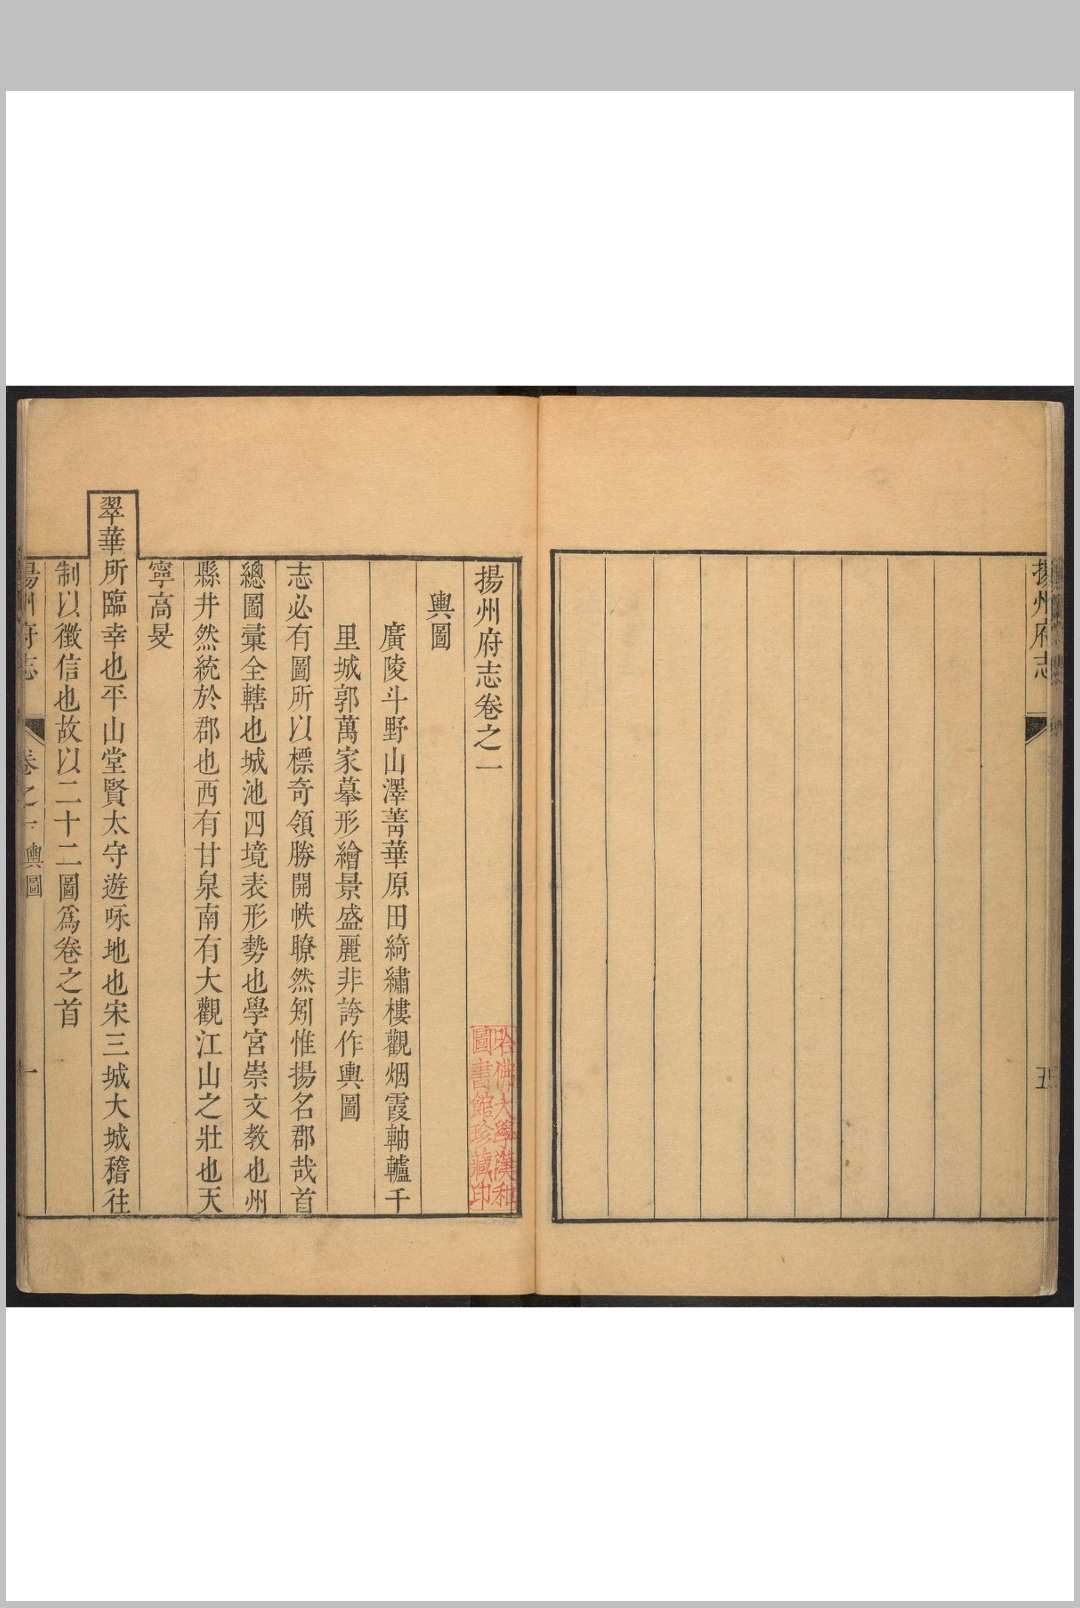 揚州府志
五
揚州府志卷之一
輿圖
廣陵斗野山澤菁華原田綺繡樓觀烟霞軸轤千
里城郭萬家摹形繪景盛麗非誇作輿圖
志必有圖所以標奇領勝開帙瞭然矧惟揚名郡哉首
總圖彙全轄也城池四境表形勢也學宮崇文教也州
縣井然統於郡也西有甘泉南有大觀江山之壯也天
寧高旻
翠華所臨幸也平山堂賢太守遊咏地也宋三城大城稽往
制以徵信也故以二十二圖爲卷之首
揚州府志
卷之一
輿圖
一
哈佛大學漢和
圖書館珍藏印